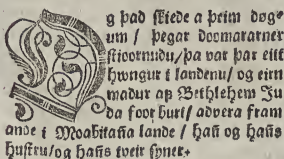 Og þad skiede a þeim dog⸗
um / þegar doomararner
stioornudu / þa var þar eitt
hvngur i landenu / og eirn
madur aþ Bethlehem Ju
da foor burt / advera fram
ande i Moabitaña lande / hañ og hañs
hustru / og hañs tveir syner.